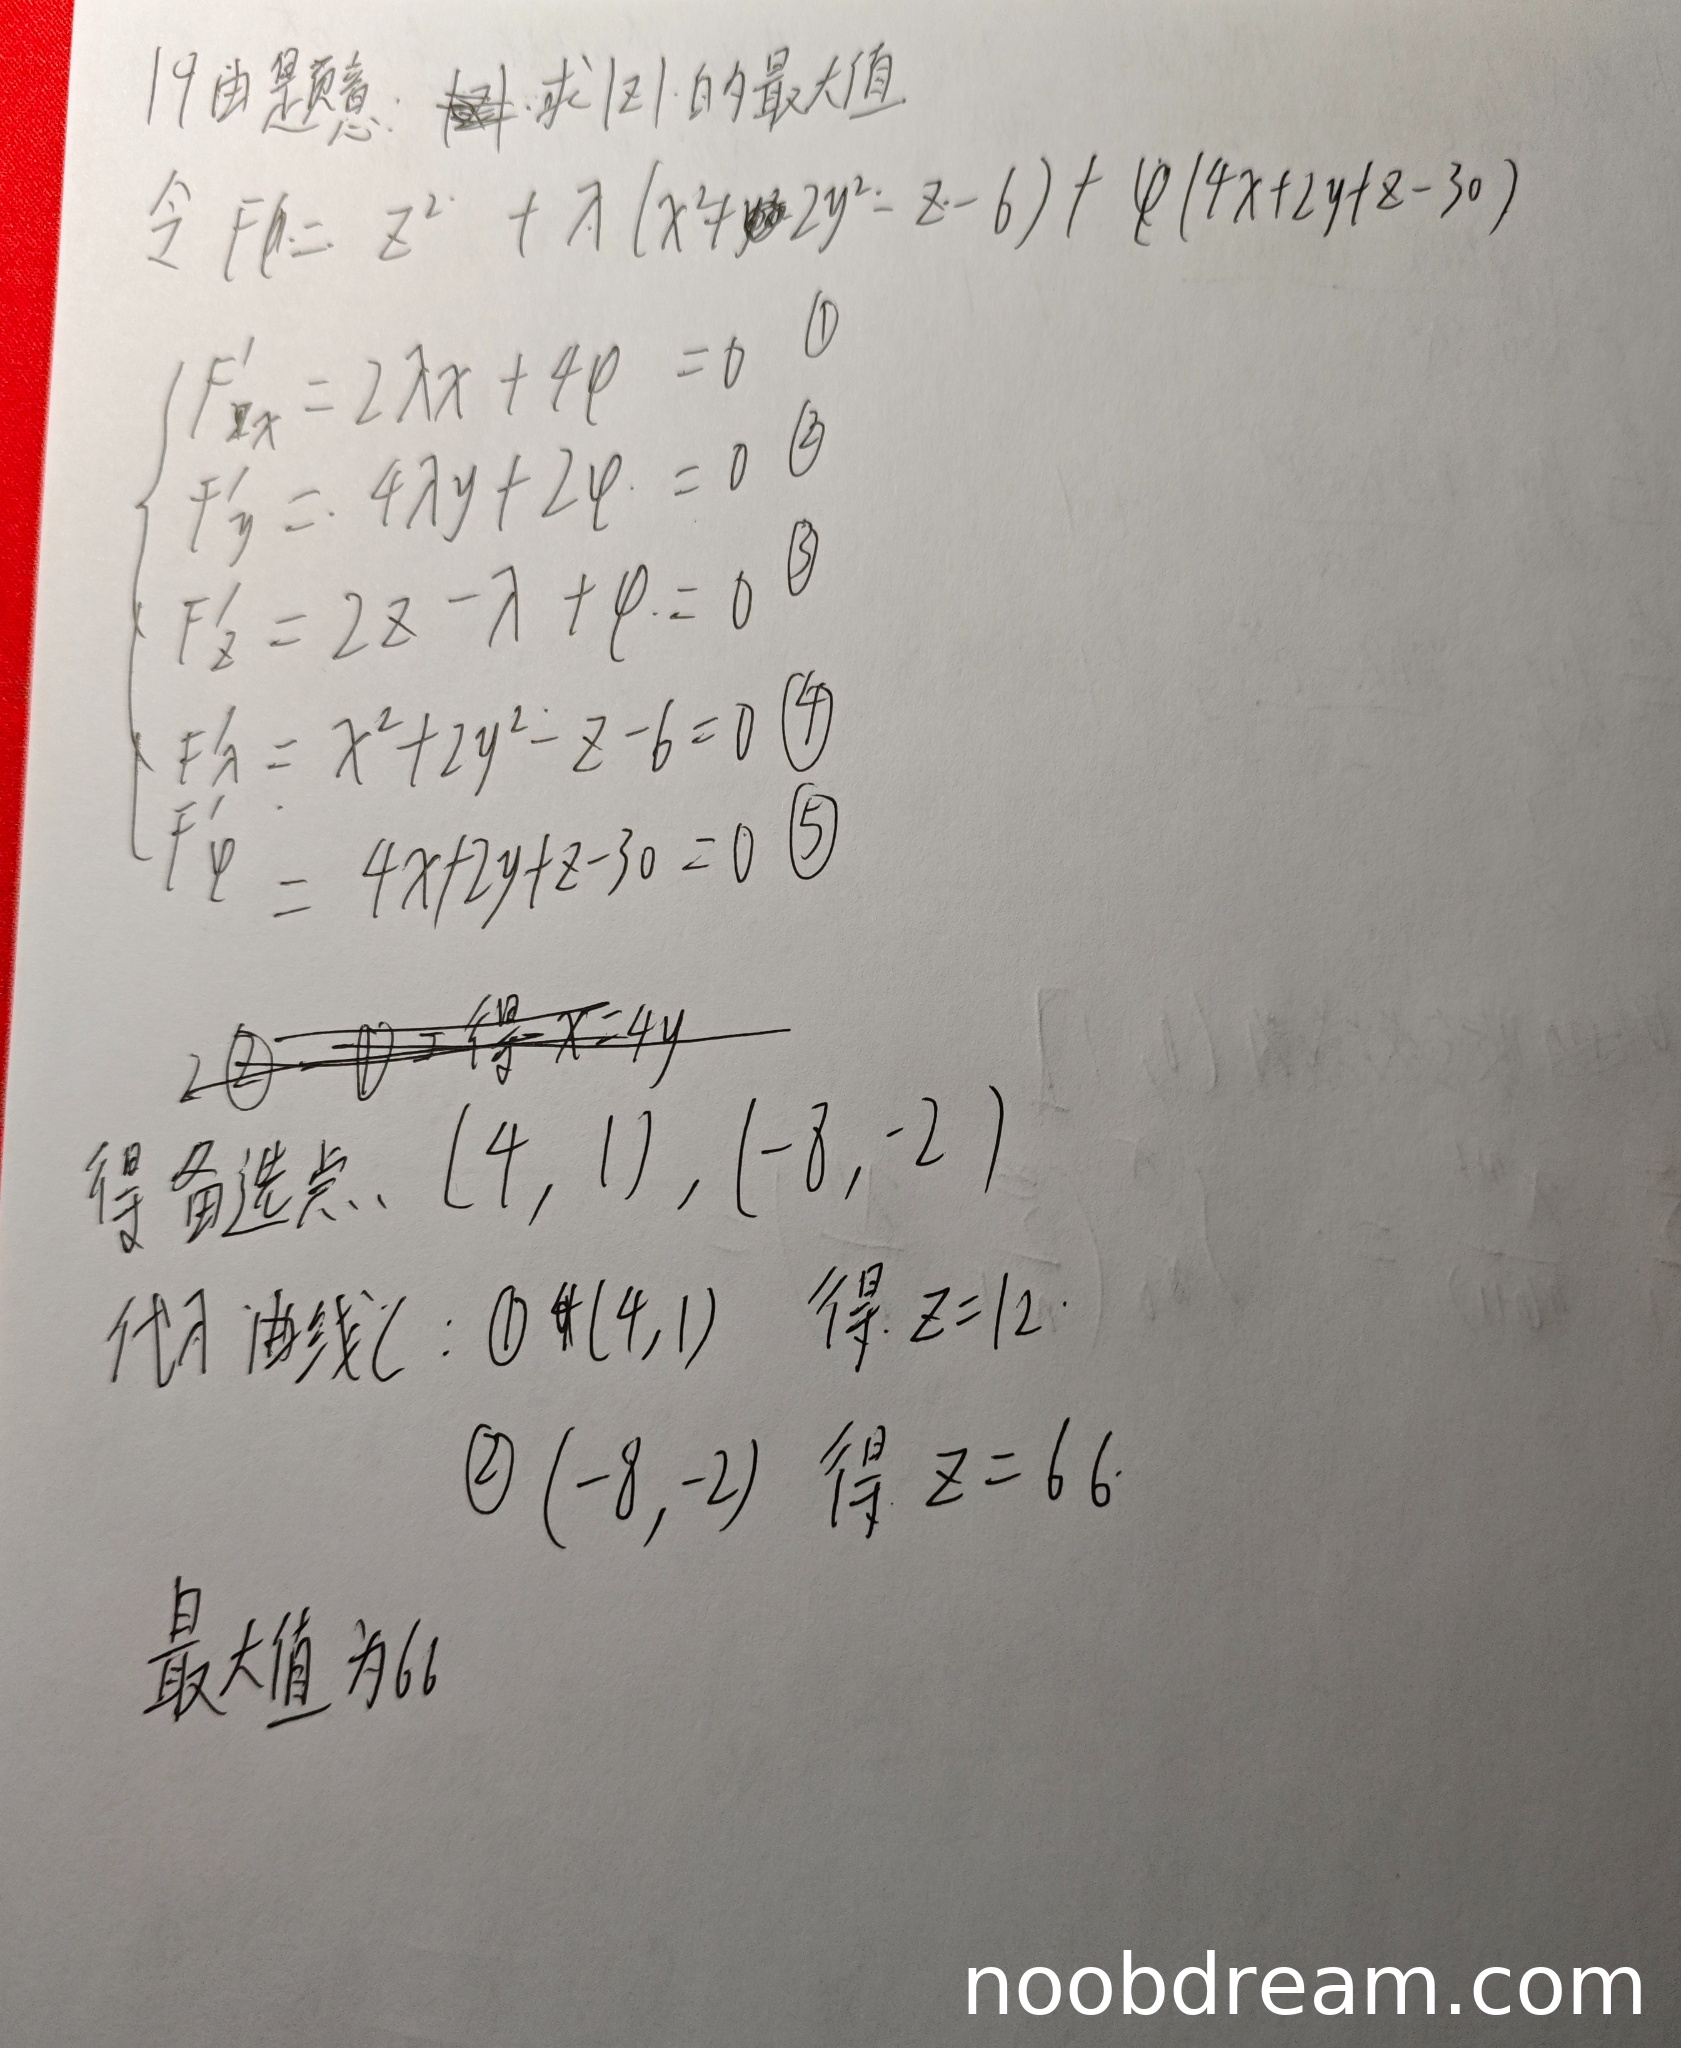 19由题意: 求|z|的最大值
令 F = z² + λ(x²+2y²-z-6) + φ(4x+2y+z-30)
F'x = 2λx + 4φ = 0 ①
F'y = 4λy + 2φ = 0 ②
F'z = 2z - λ + φ = 0 ③
F'λ = x²+2y²-z-6=0 ④
F'φ = 4x+2y+z-30=0 ⑤
2② - ① = 得 x=4y
得备选点、(4, 1), (-8, -2)
代入曲线C: ① (4,1) 得 z=12
② (-8,-2) 得 z=66
最大值为66
noobdream.com